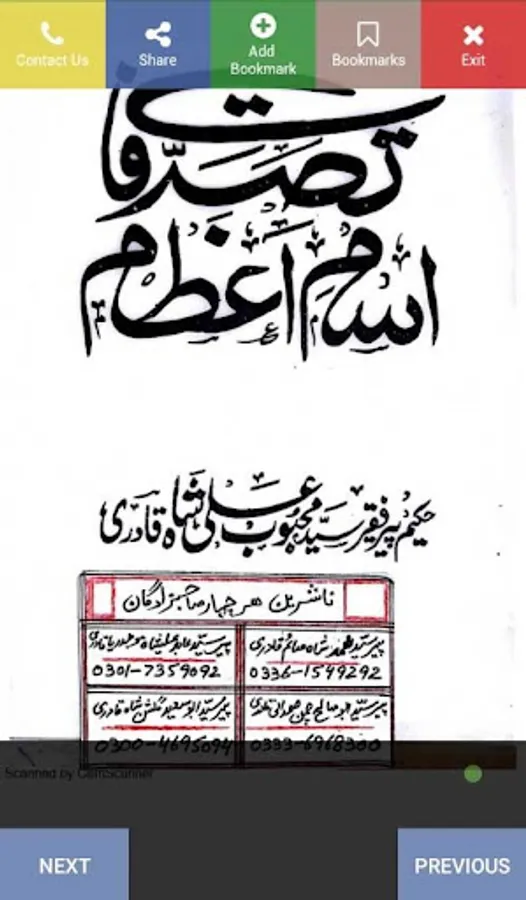 Contact Us
Share
Add Bookmark
Bookmarks
Exit
تصدقات
اسم اعظم
حکیم پیر فقیر سید محبوب علی شاہ قادری
ناشرین ہر چہار صاحبزادگان
پیر سید
شاہ صائم قادری
پیر سید
0336-1549292
0301-7359092
پیر سید ابو صالح
پیر سید ابو سعید گلشن شاہ قادری
0333-6968300
0300-4695094
Scanned by CamScanner
NEXT
PREVIOUS